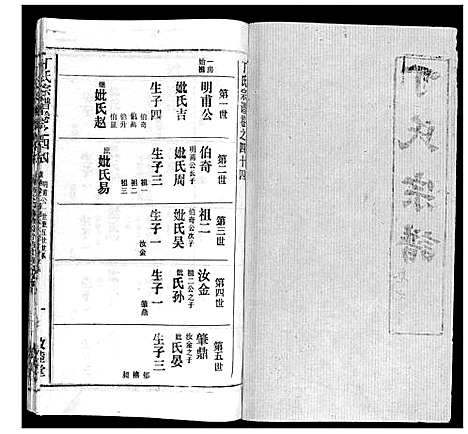 丁氏宗譜
丁氏宗譜卷之四十四
一房
始遷
第一世
明甫公
妣氏吉
生子四
伯奇
伯高
伯升
伯昆
繼
妣氏趙
第二世
伯奇
明甫公長子
妣氏周
生子三
祖一
祖二
祖三
庶
妣氏易
第三世
祖二
伯奇公次子
妣氏吴
生子一
汝金
第四世
汝金
祖二公之子
妣氏孙
生子一
肇鼎
第五世
肇鼎
汝金之子
妣氏晏
生子三
丁氏宗譜卷之四十四
一
敦睦堂